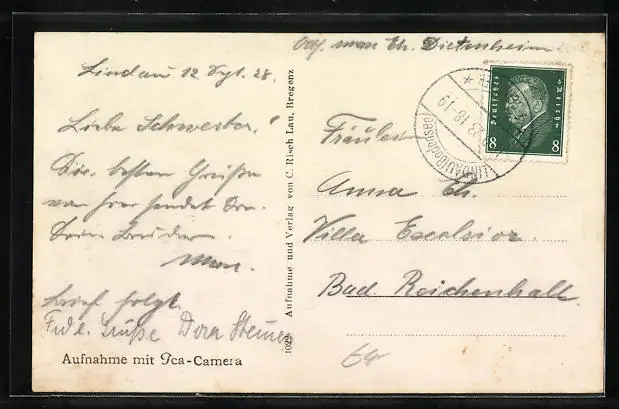 Lindau 12 Sept. 28.
Liebe Schwester!
Die besten Grüße
von hier sendet Dir
Dein Bruder
Max.
Brief folgt.
Grüße Dora Steiner
Aufnahme mit Ica-Camera
1022 Aufnahme und Verlag von C. Risch Lau, Bregenz
Dietenheim
Deutsches Reich
8 8
LINDAU (Bodensee)
Fräulein
Anna
Villa Excelsior.
Bad Reichenhall.